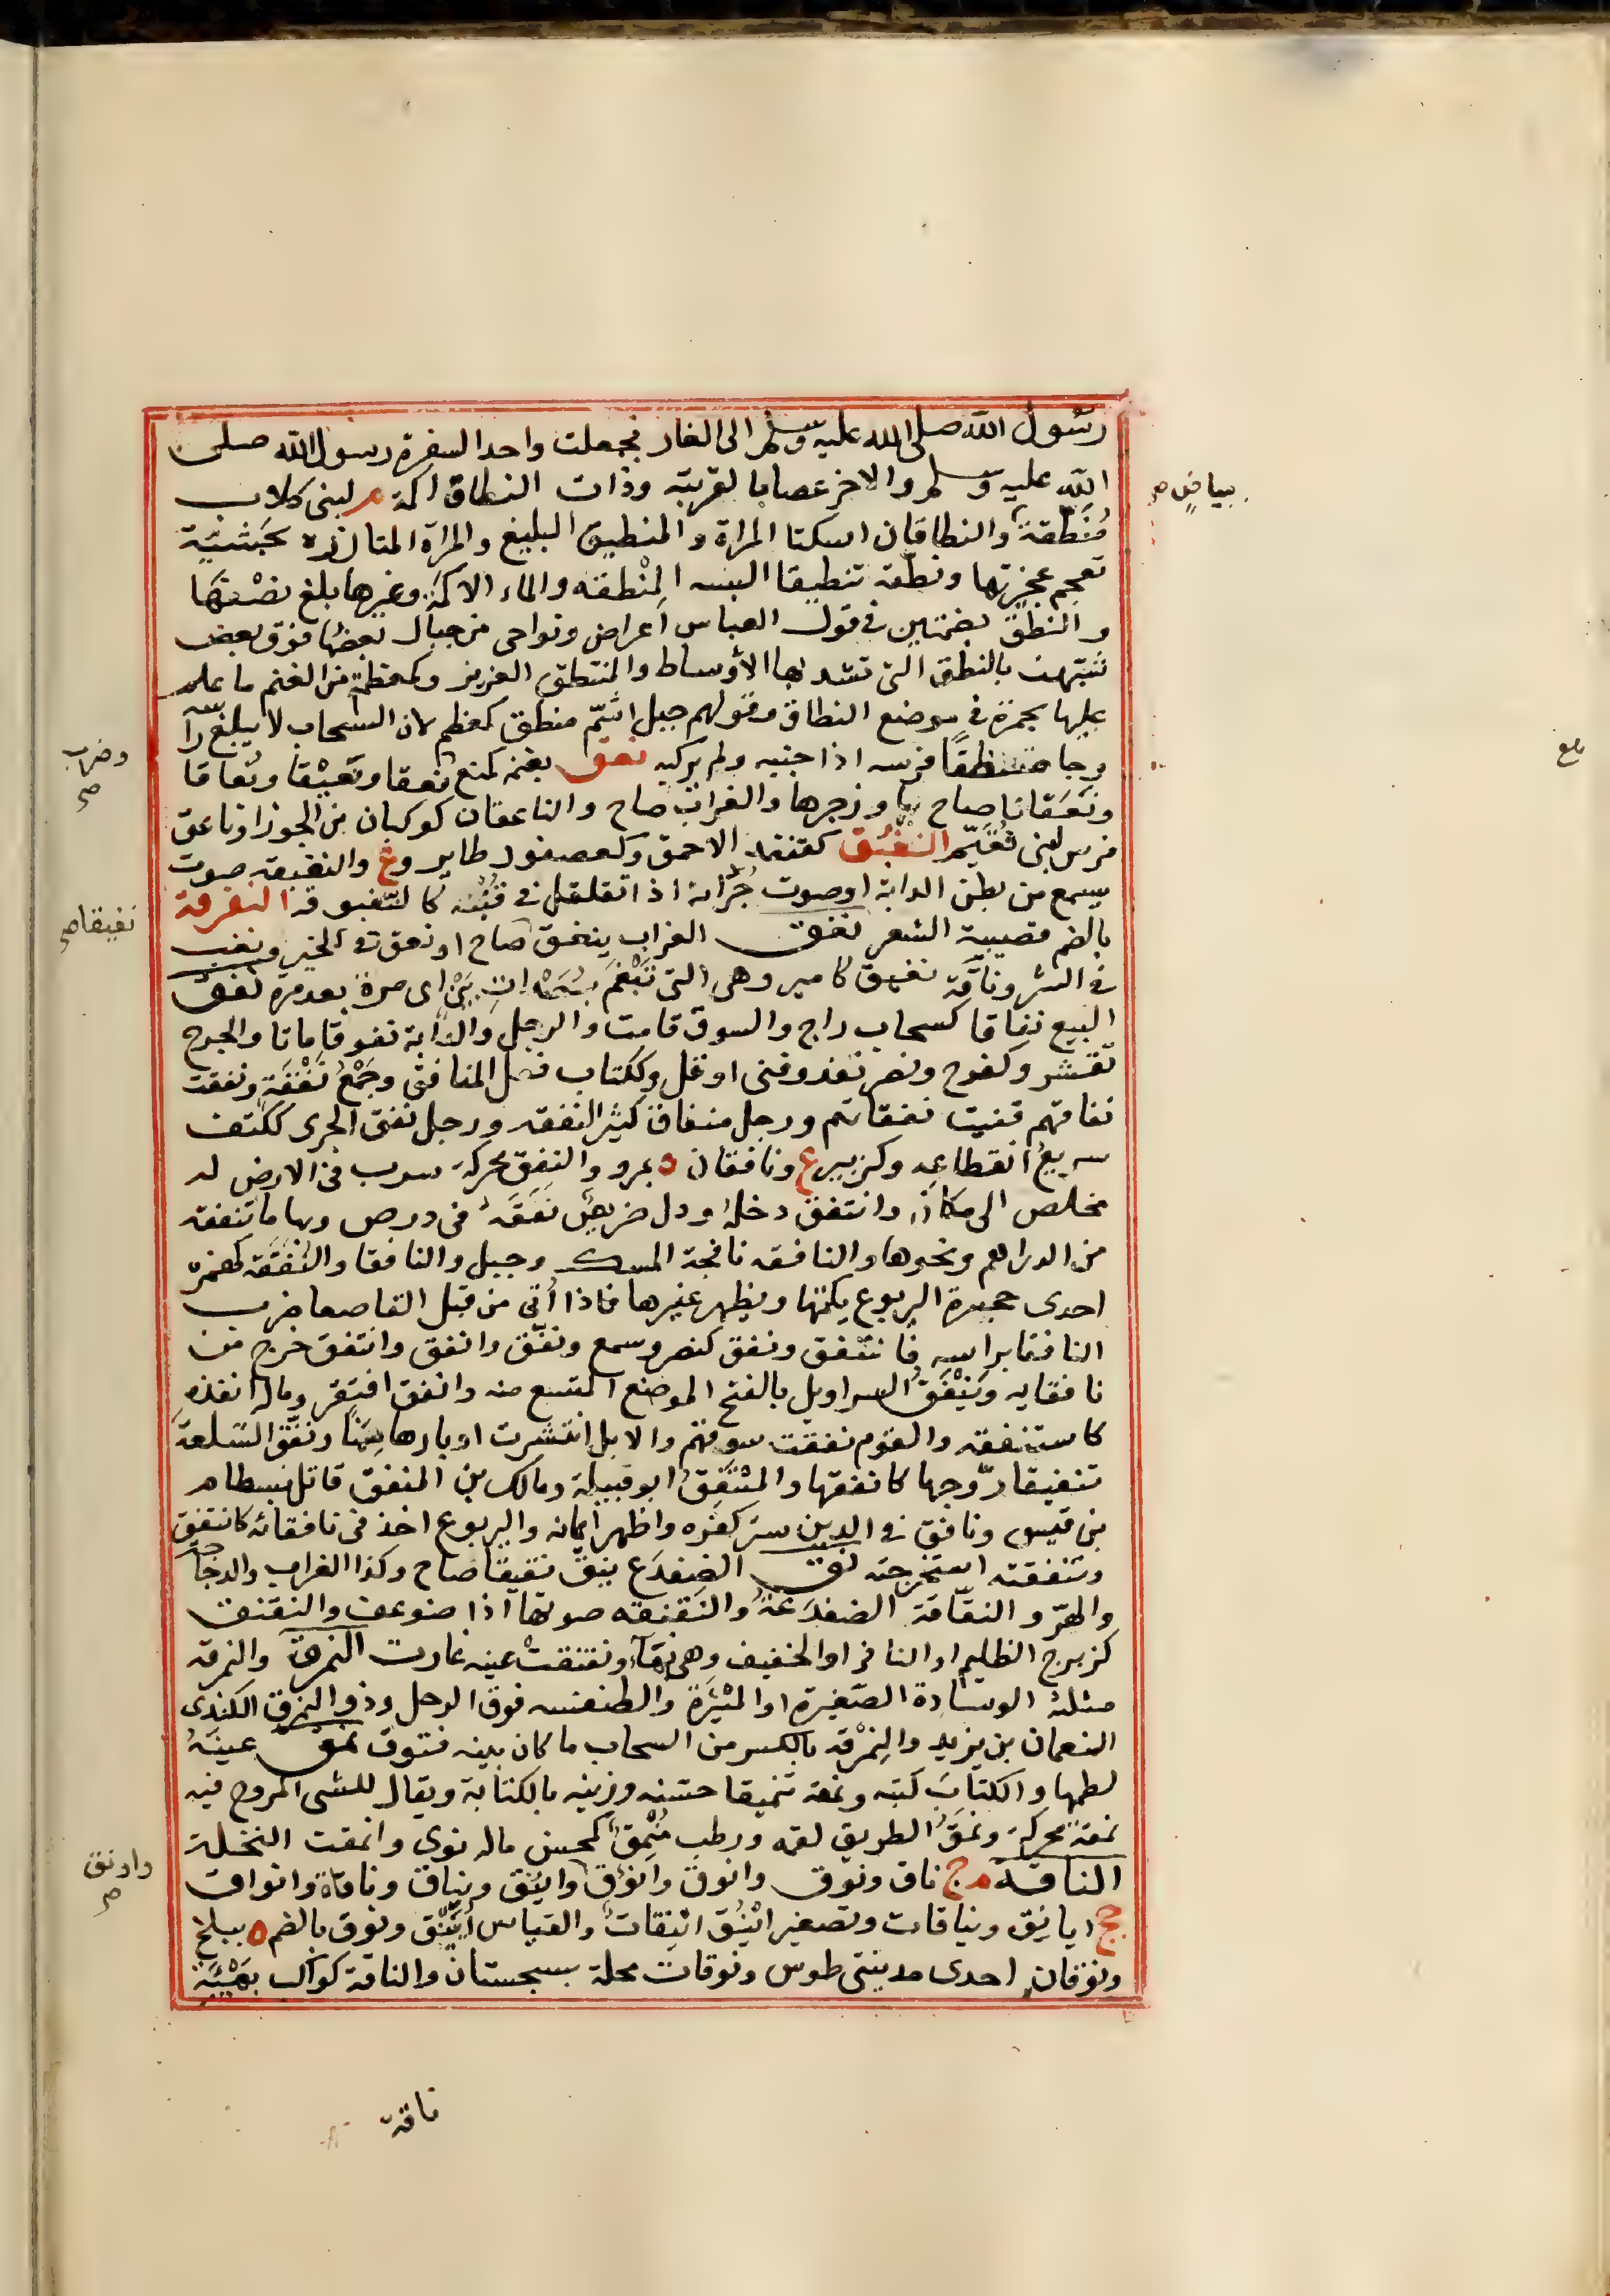 رسول الله صلى الله عليه وسلم الى الغار فجعلت واحدا لسفرة رسول الله صلى
الله عليه وسلم والاخر عصابا لقربته وذات النطاق اكمة م لبنى كلاب
بياض ص
منطقة والنطاقان اسكتا المراة والمنطيق البليغ والمراة المتازرة بحشية
تعجم عجيزتها ونطقه تنطيقا البسه المنطقه والماء الاكمة وغيرها بلغ نصفها
والنطق بضمتين فى قول العباس اعراض ونواحى من جبال بعضها فوق بعض
شبهت بالنطق التى تشد بها الأوساط والمنتطق العزيز وكمعظمة من الغنم ما علم
عليها بحمرة فى موضع النطاق وقولهم جبل اشم منطق كمعظم لان السحاب لا يبلغ راسه
وجا منتطقا فرسه اذا جنبه ولم يركبه نعق بغنمه كمنع نعقا ونعيقا ونعاقا
وضراب ص
ونعقانا صاح بها وزجرها والغراب صاح والناعقان كوكبان من الجوزا وناعق
فرس لبنى فقيم النغبق كقنفذ الاحمق وكعصفور طاير وع والنغبقة صوت
يسمع من بطن الدابة او صوت جردانه اذا تقلقل فى قنبه كالنغبوقة النغرقة
نغيقا ص
بالضم قصيبة الشعر نغق الغراب ينغق صاح او نغق فى الخير ونعب
فى الشر وناقة نغيق كامير وهى التى تبغم بعيدات بين اى مرة بعد مرة نفق
البيع نفاقا كسحاب راج والسوق قامت والرجل والدابة نفوقا ماتا والجرح
تقشر وكفرح ونصر نفد وفنى او قل وككتاب فعل المنافق وجمع نفقة ونفقت
نفاقهم فنيت نفقاتهم ورجل منفاق كثير النفقه ورجل نفق الجرى ككتف
سريع انقطاعه وكزبير ع ونافقان ة بمرو والنفق محركة سرب فى الارض له
مخلص الى مكان وانتفق دخله ودل ضريبها نفقة فى درص وبها ما تنفقه
من الدراهم ونحوها والنافقه نافجة المسك وجبل والنافقا والنفقة كهمزة
احدى جحرة اليربوع يكتمها ويظهر غيرها فاذا أتى من قبل القاصعا ضرب
النافقا براسه فانتفق ونفق كنصر وسمع ونفّق وانفق وانتفق خرج من
نافقايه ونيفق السراويل بالفتح الموضع المتسع منه وانفق افتقر وماله انفذه
كاستنفقه والقوم نفقت سوقهم والابل انتشرت اوبارها سمنا ونفق السلعة
تنفيقا روجها كانفقها والمنتفق ابو قبيلة ومالك بن المنتفق قاتل بسطام
بن قيس ونافق فى الدين ستر كفره واظهر ايمانه واليربوع اخذ فى نافقائه كانتفق
وتنفقته استخرجته نق الضفدع ينق نقيقا صاح وكذا الغراب والدجاجة
والهر والنقاقة الضفدعة والنقنقه صوتها اذا ضوعف والنقنق
كزبرج الظليم او النافر او الخفيف وهى بهاء ونقنقت عينه غارت النمرق والنمرقه
مثلثة الوسادة الصغيرة او الميثرة والطنفسه فوق الرحل وذو النمرق الكندى
النعمان بن يزيد والنمرقه بالكسر من السحاب ما كان بينه فتوق نمق عينه
لطمها والكتاب كتبه ونمقه تنميقا حسنه وزينه بالكتابة ويقال للشى المروح فيه
نمقة محركة ونمق الطريق لقمه ورطب منمق كمحسن ماله نوى وانمقت النخلة
النافة م ج ناق ونوق وانوق وانؤق واينق ونياق وناقاة وانواق
وادنق ص
جج ايانق ونياقات وتصغير اينق اينقات والقياس اييّنق ونوق بالضم ة ببلخ
ونوقان احدى مدينتى طوس ونوقات محلة بسجستان والناقة كواكب بهيئة
ناقة